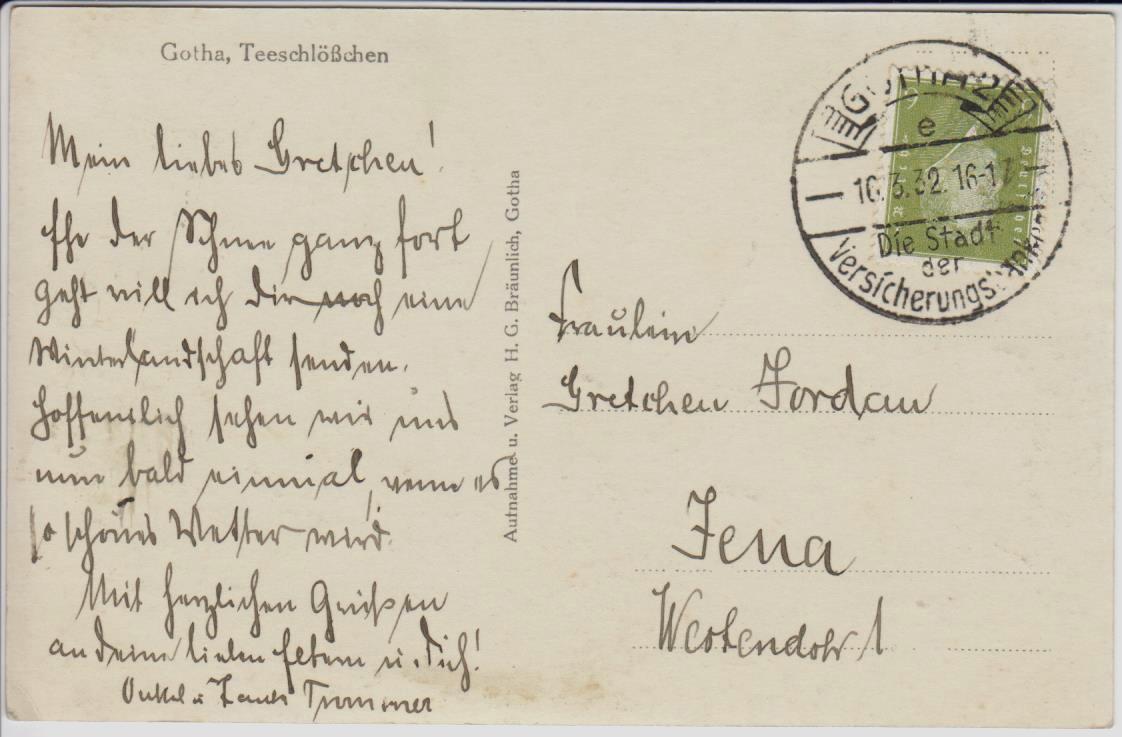 Gotha, Teeschlößchen
Mein liebes Gretchen!
Ehe der Schnee ganz fort
geht will ich dir noch eine
Winterlandschaft senden.
Hoffentlich sehen wir uns
nun bald einmal, wenn es
so schönes Wetter wird.
Mit herzlichen Grüßen
an deine lieben Eltern u. dich!
Onkel u Tante
Aufnahme u. Verlag H. G. Bräunlich, Gotha
GOTHA 2
e
3.32.16-17
Die Stadt
der
Versicherungs
6 6
Fräulein
Gretchen Jordan
Jena
Westendstr 1